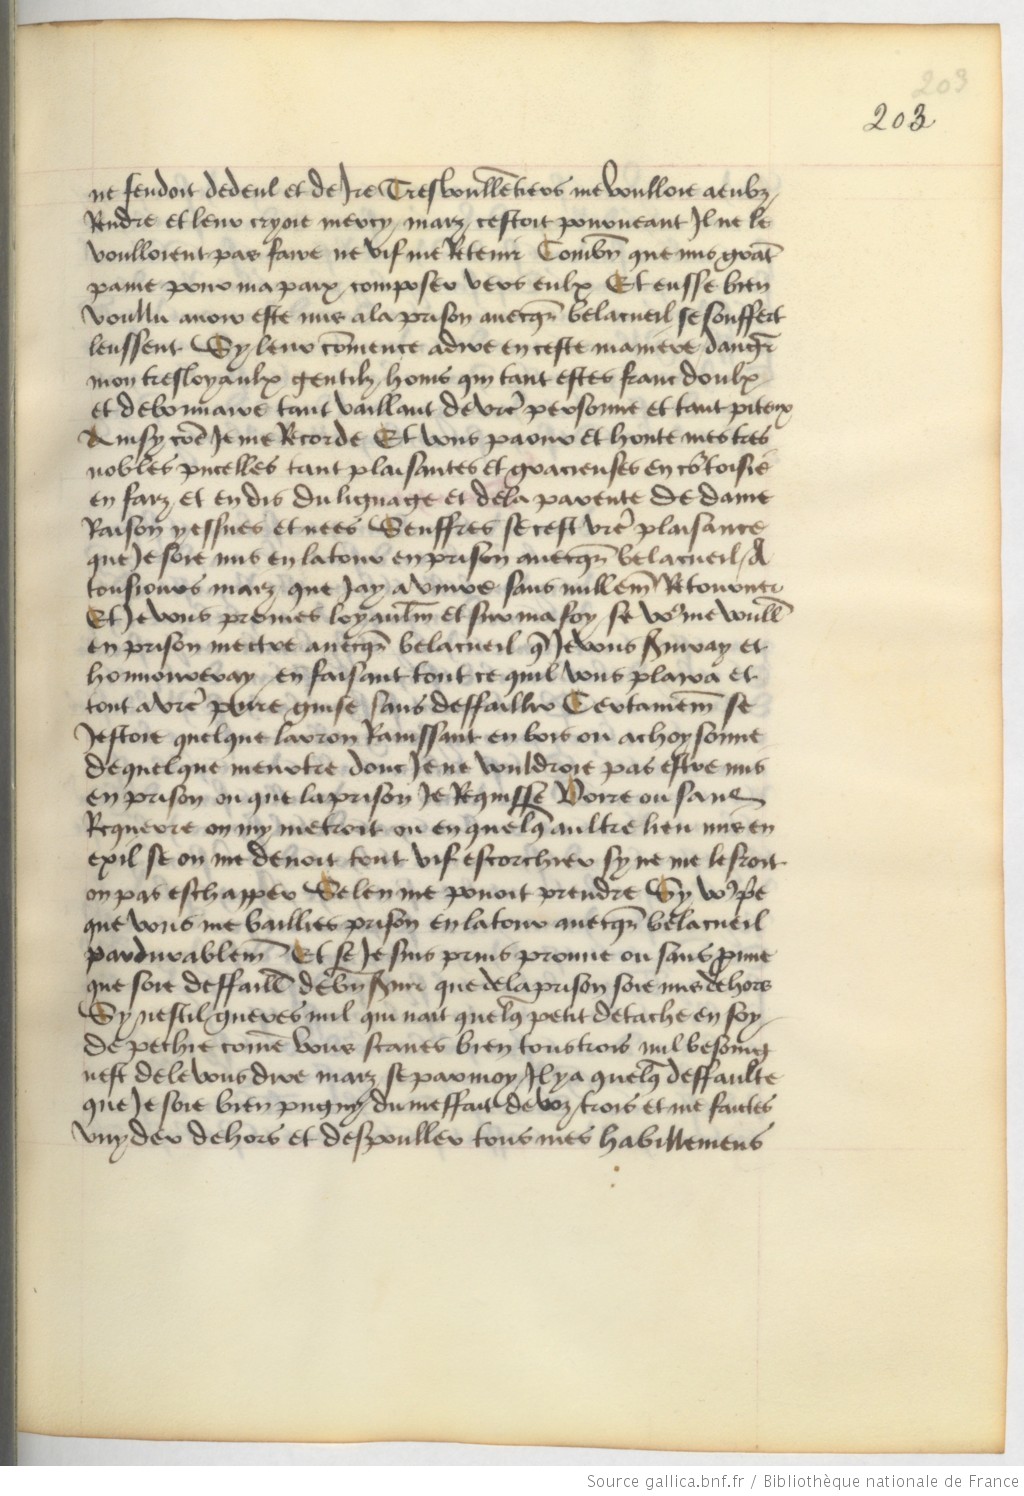 203
203
ne fendoit de deul et de Ire Tresvoullẽtiers me voulloie a eulx
Rendre et leur cryoie mercy marz cestoit pour neant Il ne le
voulloient pas faire ne vif me Retenir Combñ que mis grãt
paine pour ma paix composer vers eulx Et eusse bien
voullu avoir este mis a la prison avecq̃s belacueil se souffert
leussent Sy leur cõmence a dire en ceste maniere dangr̃
mon tresloyaulx gentilz homs qui tant estes franc doulx
et debonnaire tant vaillant de vrẽ personne et tant piteux
Ainsy cõe Je me Recorde Et vous paour et honte mes tres
nobles pucelles tant plaisantes et gracieuses en co'toisie
en faiz et en dis du lignage et de la parente de dame
Raison yessues et nees Seuffres se cest vrẽ plaisance
que Je soie mis en la tour en prison avecq̃s belacueil / A
tousiours marz que Jay a vivre sans nullem̃ Retourner
Et Je vous promes loyaulm̃ et sur ma foy se vo' me voull̃
en prison mectre avecq̃s belacueil q̃ Je vous s̃viray et
honnoureray en faisant tout ce quil vous plaira et
tout a vrẽ pure guise sans deffaillir Certainem̃ se
Jestoie quelque larron Ravissant en bois ou achoysonne
de quelque meurtre donc Je ne vouldroie pas estre mis
en prison ou que la prison Je Requisse Voire ou sans
Requerre on my metroit ou en quelq̃ aultre lieu mis en
exil se on me devoit tout vif escorchier sy ne me lesroit
on pas eschapper Se len me povoit prendre Sy vo' p̃e
que vous me baillies prison en la tour avecq̃s belacueil
pardurablem̃ Et se Je suis prins prouve ou sans prime
que soie deffaill̃ de bñ s̃vir que de la prison soie mis dehors
Sy nestil gueres nul qui nait quelq̃ petit de tache en soy
de pechie com̃e vous scaves bien tous trois nul besoing
nest de le vous dire marz se par moy Il y a quelq̃ deffaulte
que Je soie bien pugny du meffait de voz trois et me faictes
vuyder dehors et despouller tous mes habillemens
Source gallica.bnf.fr / Bibliothèque nationale de France